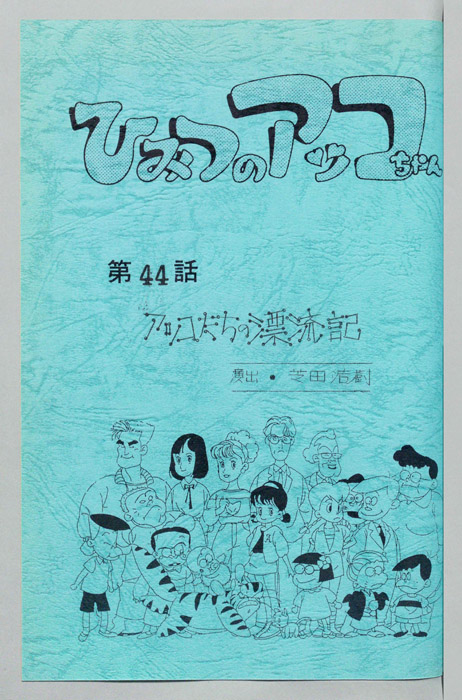 ひみつのアッコちゃん
第44話
アッコたちの漂流記
演出・芝田浩樹